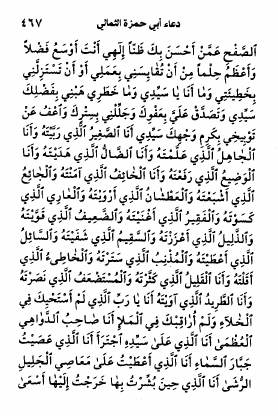 دعاء أبي حمزة الثمالي ٤٦٧
الصَّفْحِ عَمَّنْ أَحْسَنَ بِكَ ظَنّاً إِلٰهِي أَنْتَ أَوْسَعُ فَضْلاً
وَأَعْظَمُ حِلْماً مِنْ أَنْ تُقَايِسَنِي بِعَمَلِي أَوْ أَنْ تَسْتَزِلَّنِي
بِخَطِيئَتِي وَمَا أَنَا يَا سَيِّدِي وَمَا خَطَرِي هَبْنِي بِفَضْلِكَ
سَيِّدِي وَتَصَدَّقْ عَلَيَّ بِعَفْوِكَ وَجَلِّلْنِي بِسِتْرِكَ وَاعْفُ عَنْ
تَوْبِيخِي بِكَرَمِ وَجْهِكَ سَيِّدِي أَنَا الصَّغِيرُ الَّذِي رَبَّيْتَهُ وَأَنَا
الْجَاهِلُ الَّذِي عَلَّمْتَهُ وَأَنَا الضَّالُّ الَّذِي هَدَيْتَهُ وَأَنَا
الْوَضِيعُ الَّذِي رَفَعْتَهُ وَأَنَا الْخَائِفُ الَّذِي آمَنْتَهُ وَالْجَائِعُ
الَّذِي أَشْبَعْتَهُ وَالْعَطْشَانُ الَّذِي أَرْوَيْتَهُ وَالْعَارِي الَّذِي
كَسَوْتَهُ وَالْفَقِيرُ الَّذِي أَغْنَيْتَهُ وَالضَّعِيفُ الَّذِي قَوَّيْتَهُ
وَالذَّلِيلُ الَّذِي أَعْزَزْتَهُ وَالسَّقِيمُ الَّذِي شَفَيْتَهُ وَالسَّائِلُ
الَّذِي أَعْطَيْتَهُ وَالْمُذْنِبُ الَّذِي سَتَرْتَهُ وَالْخَاطِىءُ الَّذِي
أَقَلْتَهُ وَأَنَا الْقَلِيلُ الَّذِي كَثَّرْتَهُ وَالْمُسْتَضْعَفُ الَّذِي نَصَرْتَهُ
وَأَنَا الطَّرِيدُ الَّذِي آوَيْتَهُ أَنَا يَا رَبِّ الَّذِي لَمْ أَسْتَحْيِكَ فِي
الْخَلَاءِ وَلَمْ أُرَاقِبْكَ فِي الْمَلَإِ أَنَا صَاحِبُ الدَّوَاهِي
الْعُظْمَىٰ أَنَا الَّذِي عَلَىٰ سَيِّدِهِ اجْتَرَأَ أَنَا الَّذِي عَصَيْتُ
جَبَّارَ السَّمَاءِ أَنَا الَّذِي أَعْطَيْتُ عَلَىٰ مَعَاصِي الْجَلِيلِ
الرُّشَىٰ أَنَا الَّذِي حِينَ بُشِّرْتُ بِهَا خَرَجْتُ إِلَيْهَا أَسْعَىٰ